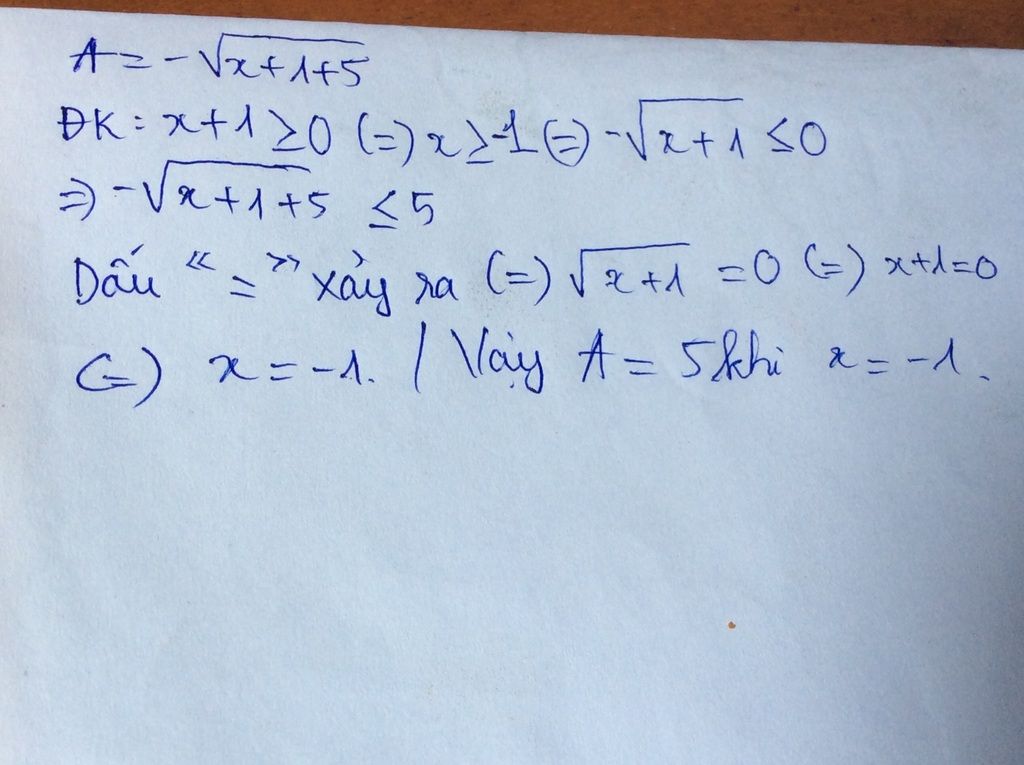 A = -√x+1+5
ĐK: x+1 ≥ 0 (=) x ≥ -1 (=) -√x+1 ≤ 0
=) -√x+1+5 ≤ 5
Dấu "=" xảy ra (=) √x+1 = 0 (=) x+1=0
(=) x = -1. / Vậy A = 5 khi x = -1.